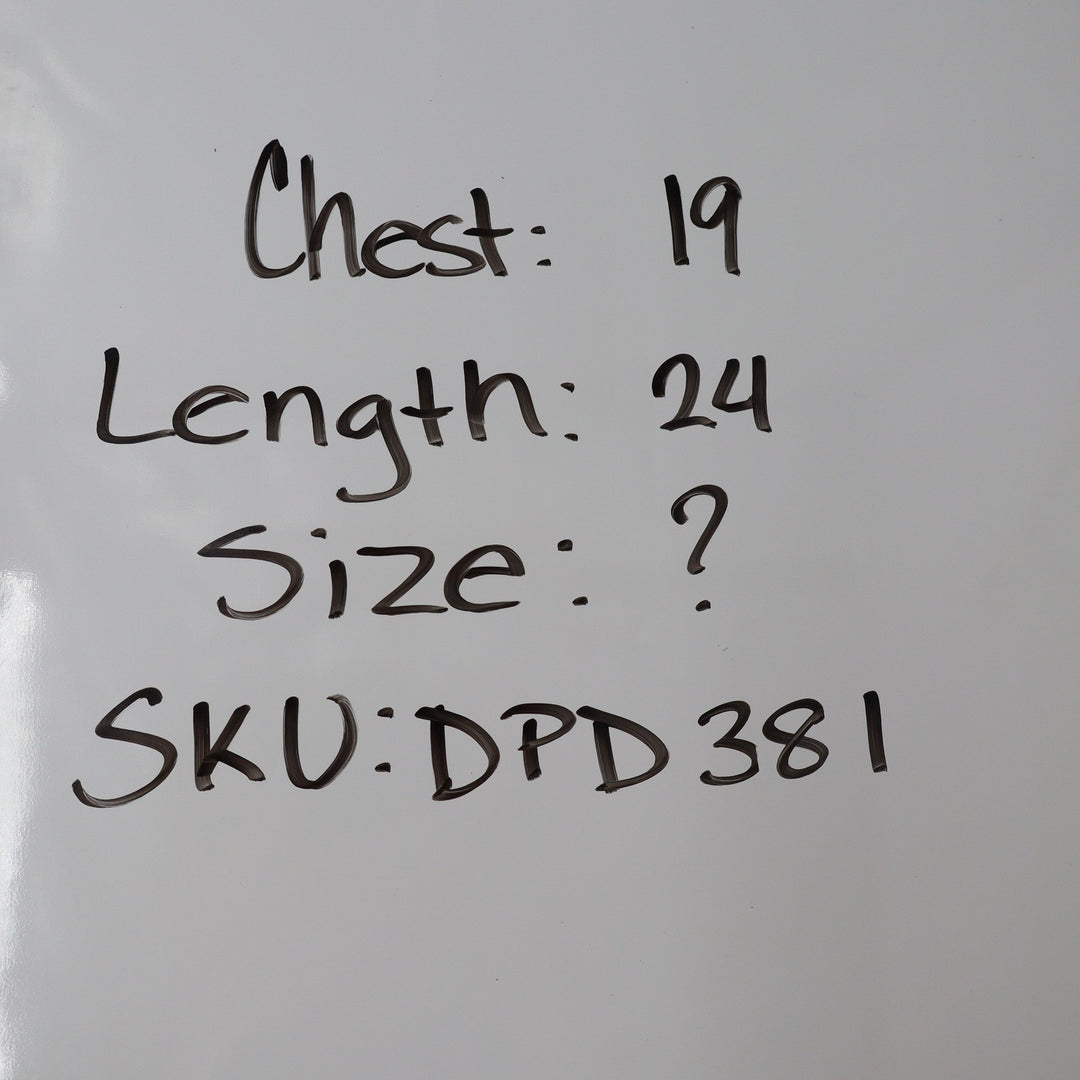 Chest: 19
Length: 24
Size: ?
SKU: DPD381